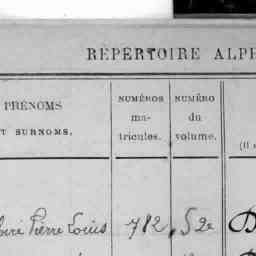 RÉPERTOIRE ALPH
PRÉNOMS
T SURNOMS,
NUMÉROS
ma-
tricules.
NUMÉRO
du
volume.
(Il
Pierre Louis 782 52e D